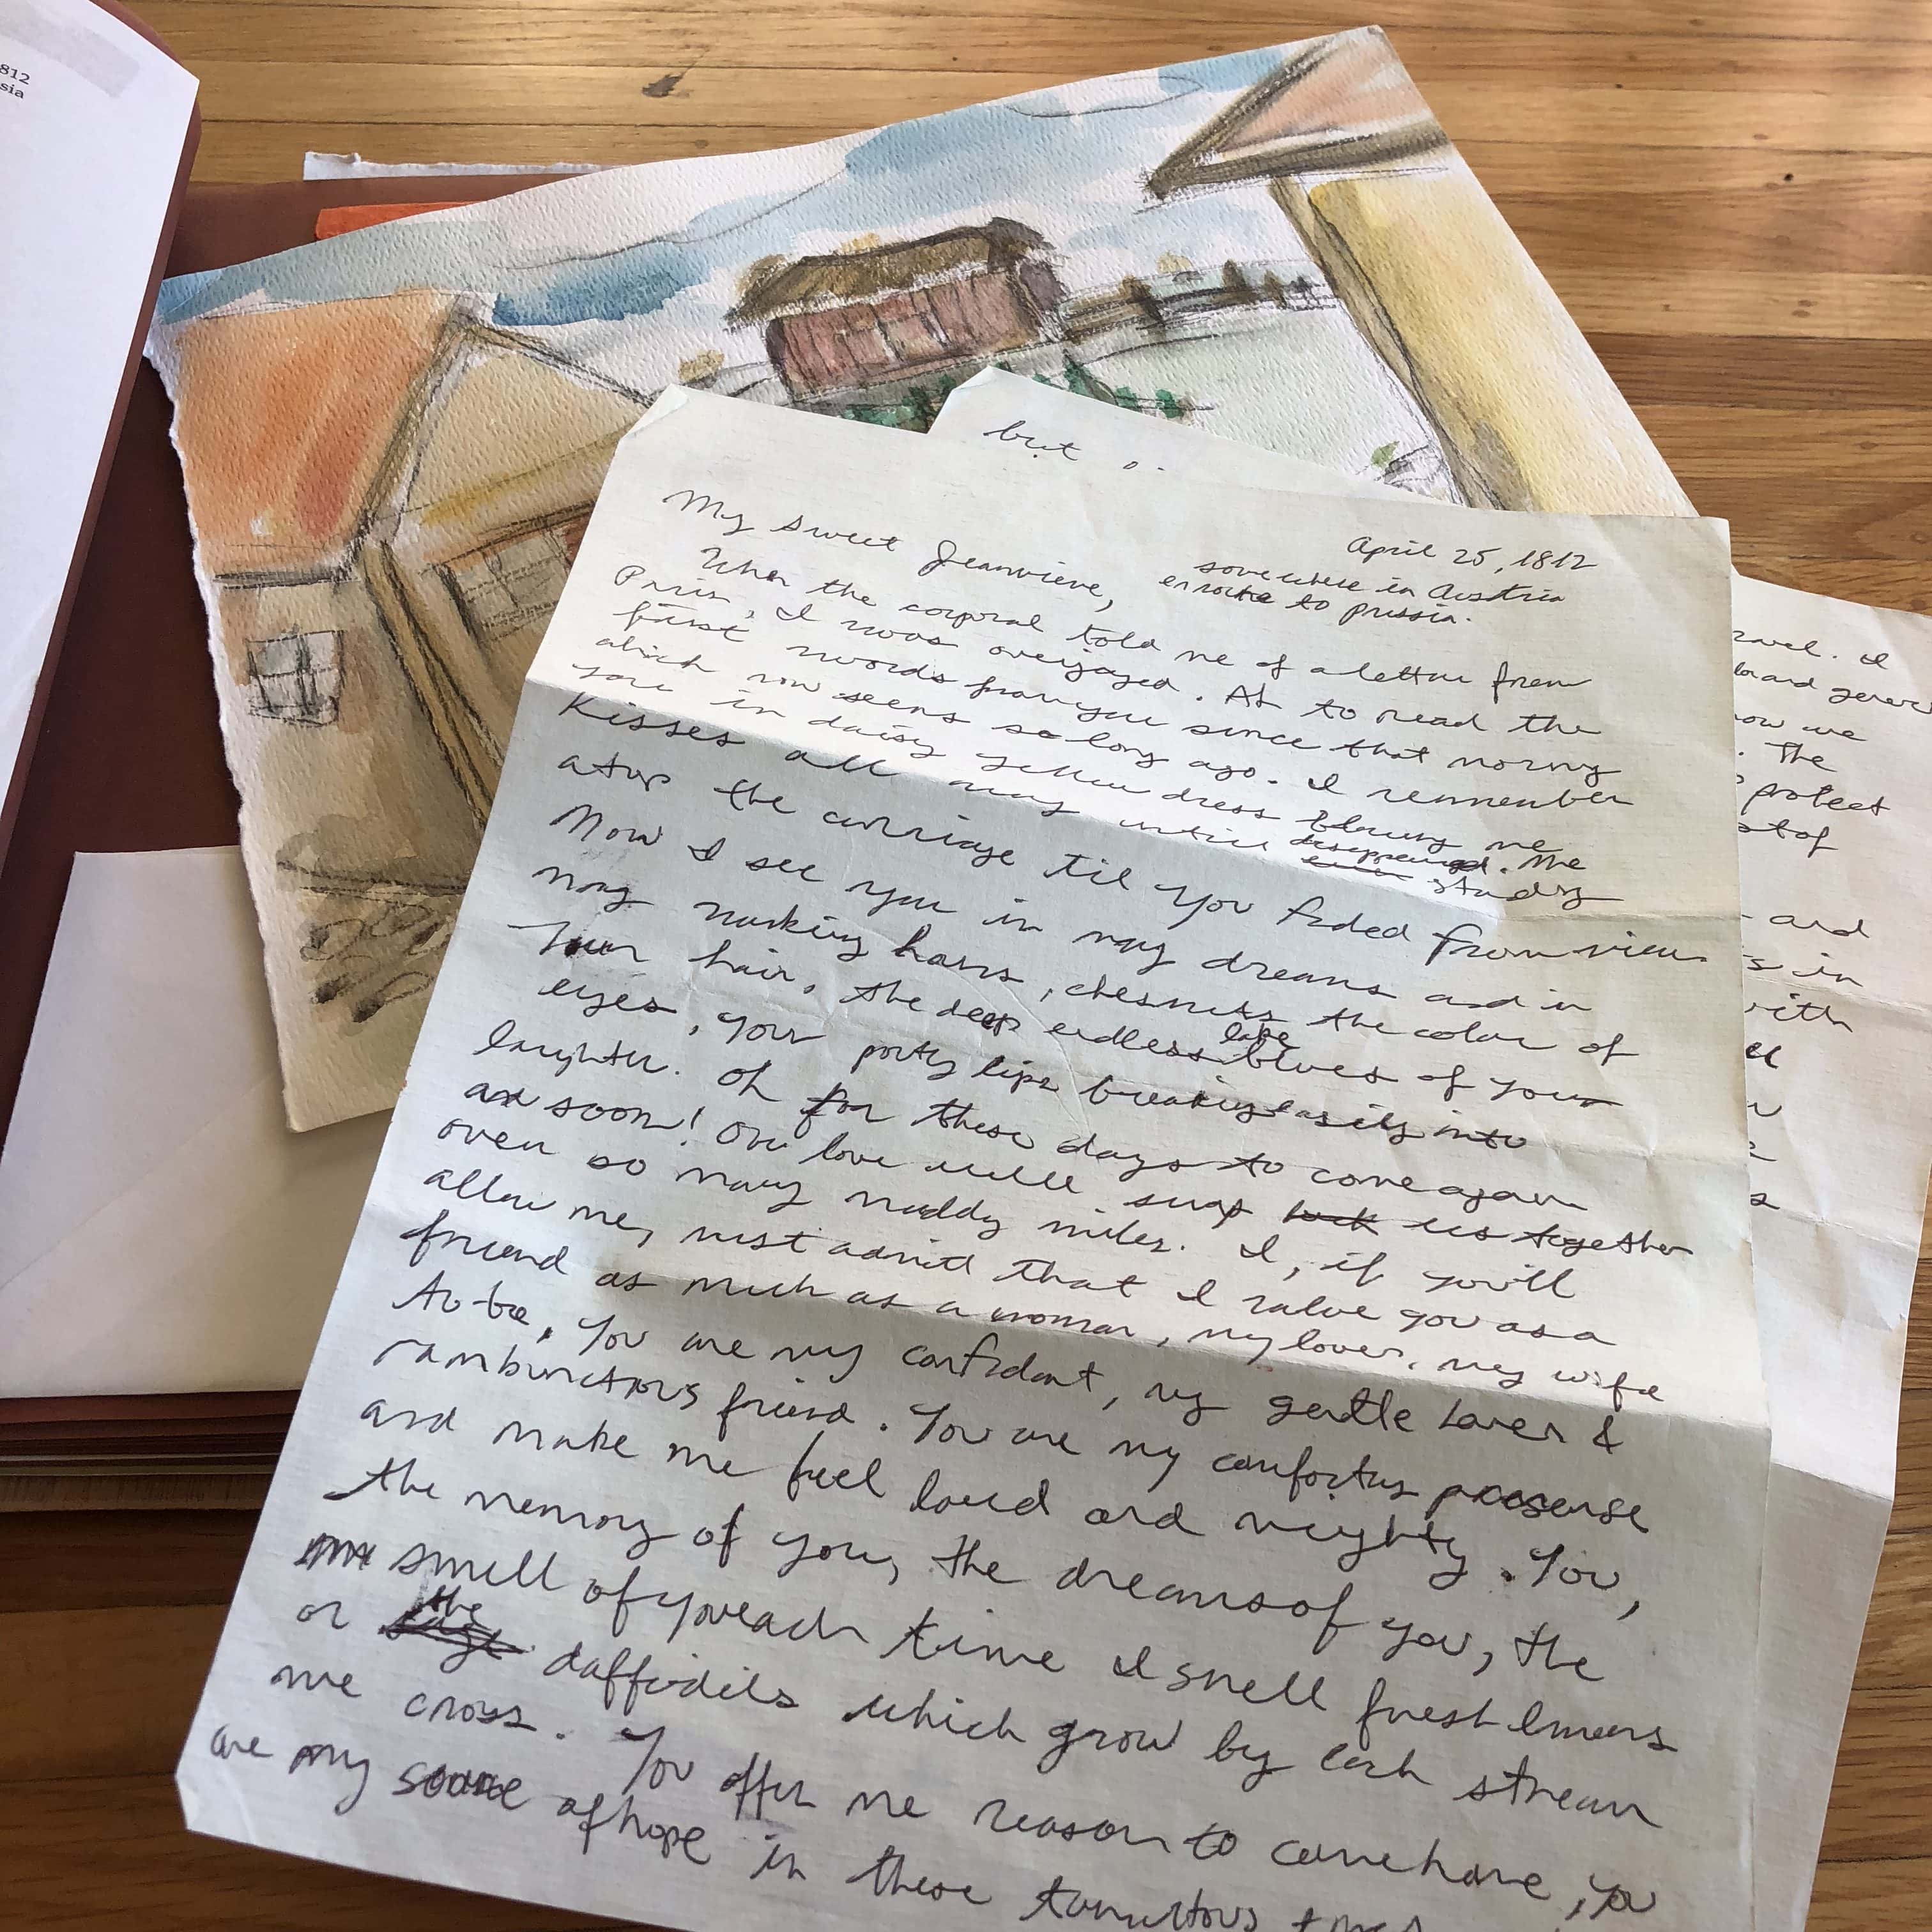 812
sia
but
April 25, 1812
My sweet Jeanvieve,
somewhere in Austria
enroute to prussia.
When the corporal told me of a letter from
Paris, I was overjoyed. Ah to read the
first words from you since that morng
which now seems so long ago. I remember
you in daisy yellow dress blowing me
Kisses all the way until disappeared. Me
study
atop the carriage til you faded from view
Now I see you in my dreams and in
my waking hours, chesnuts the color of
Your hair, the deep endless lake blues of your
eyes, your pouty lips breaking easily into
laughter. Oh for these days to come again
and soon! Our love will snap us together
over so many muddy miles. I, if you'll
allow me, must admit that I value you as a
friend as much as a woman, my lover, my wife
to be, You are my confidant, my gentle Lover &
rambunctious friend. You are my comforting presense
and make me feel loved and mighty. You,
the memory of you, the dreams of you, the
smell of you each time I smell fresh
or the daffidils which grow by each stream
we cross. You offer me reason to come home, you
are my source of hope in these tumultous times
ravel. I
and
now we
. The
protect
st of
and
s in
with